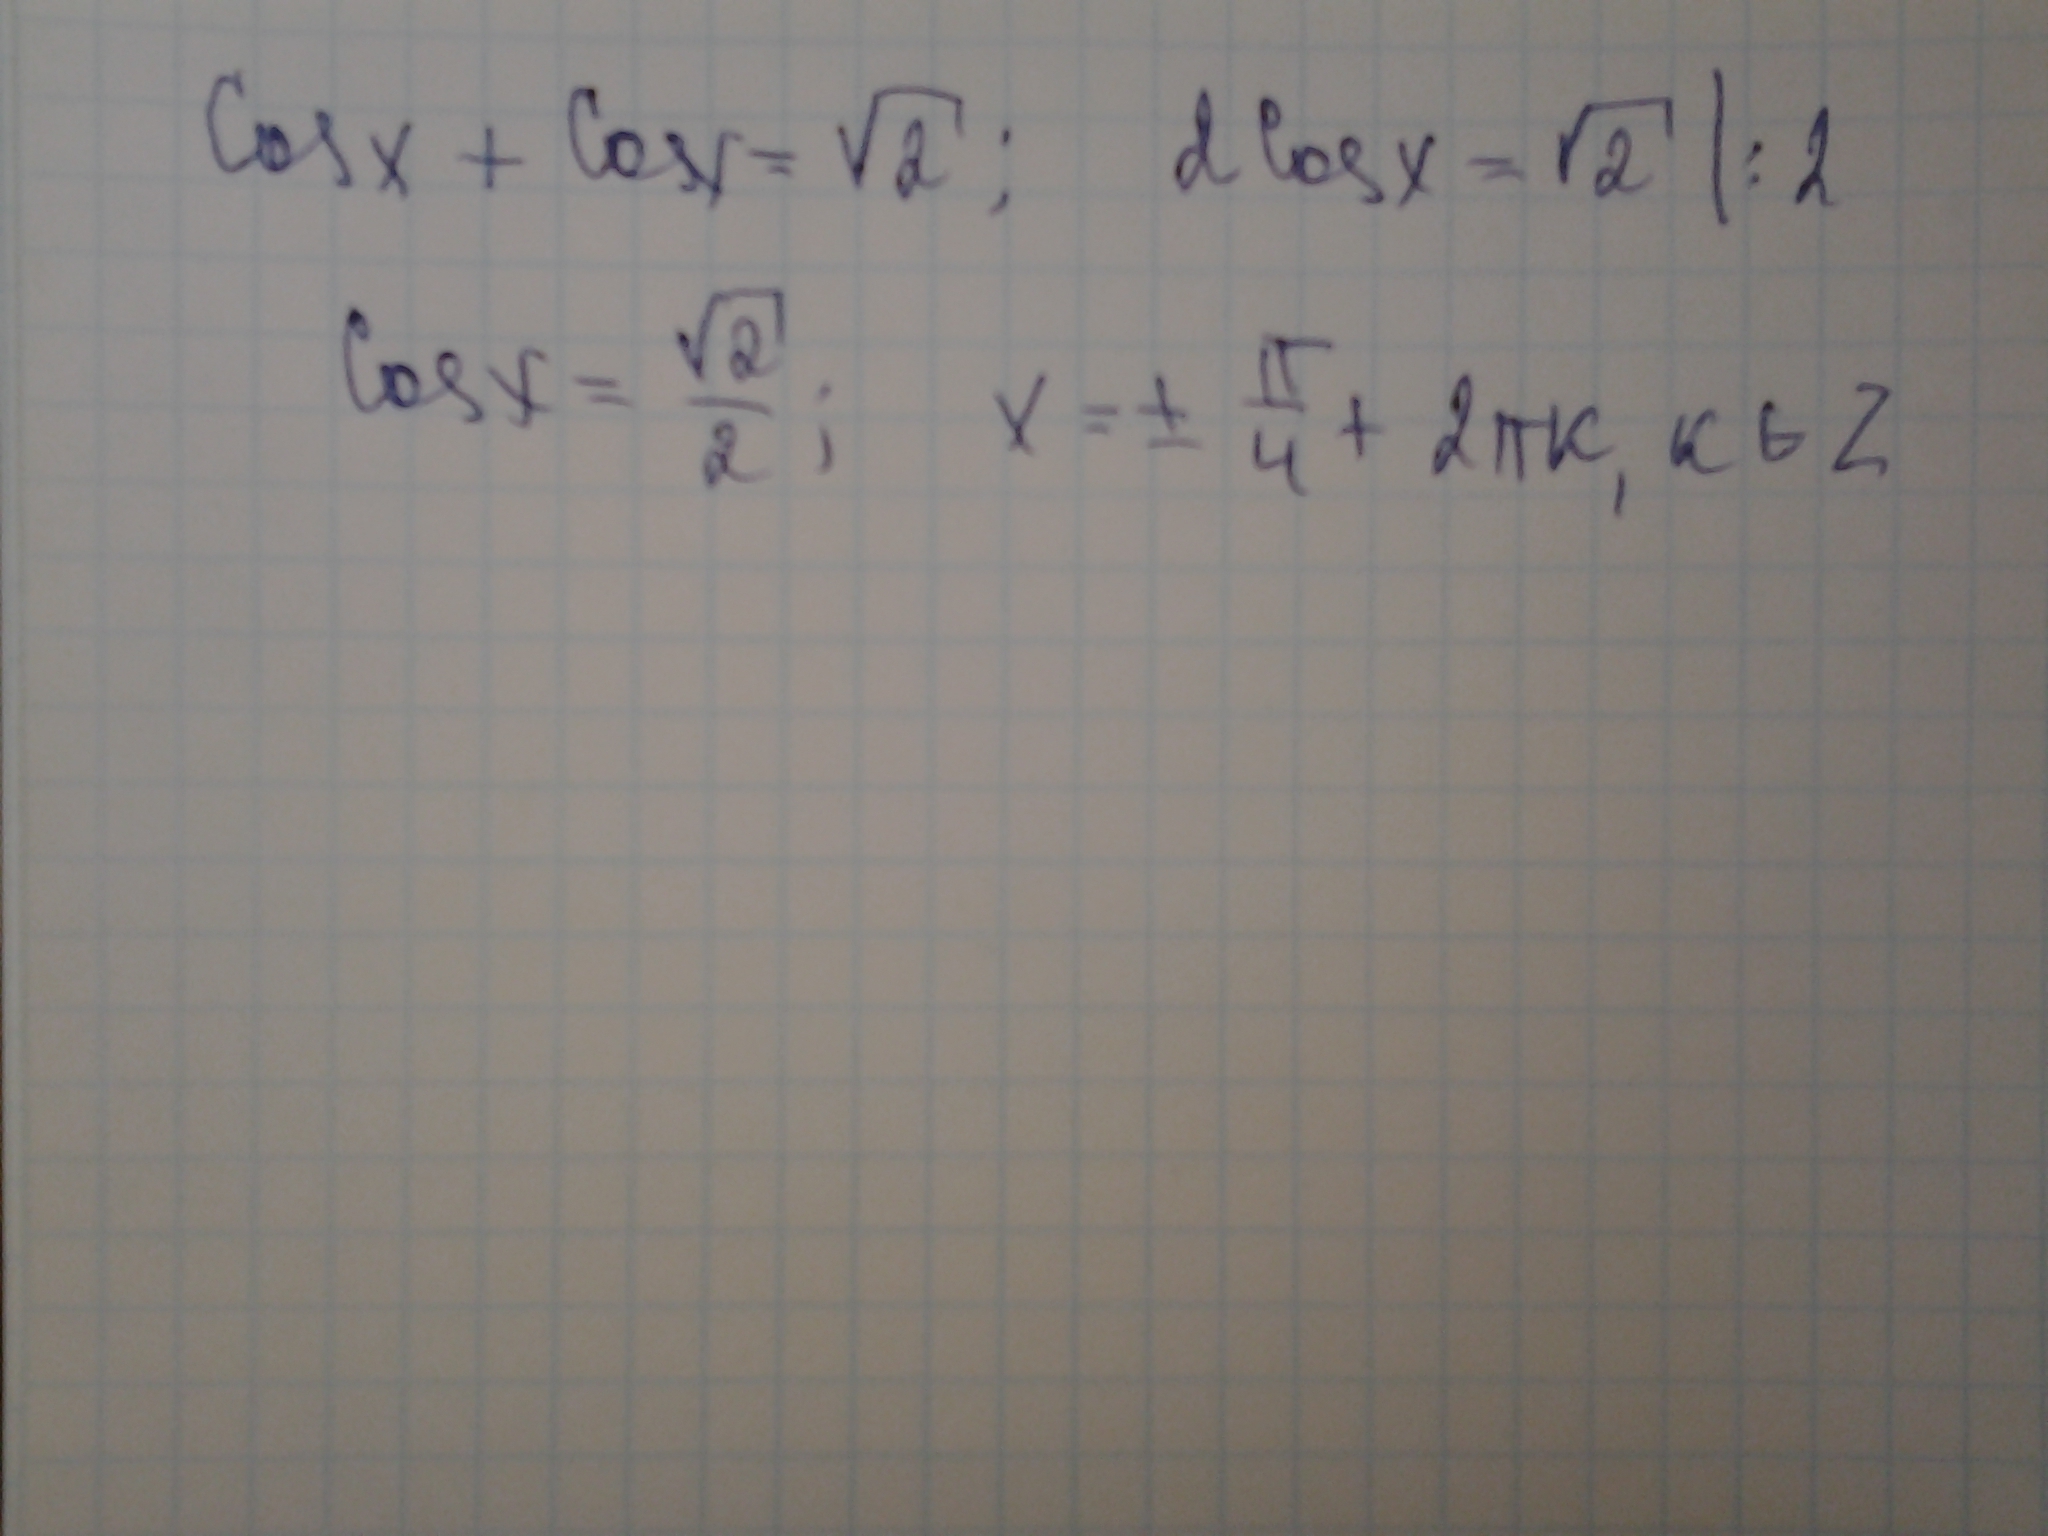 Cosx + Cosx = √2; 2Cosx = √2 |: 2
Cosx = √2/2; x = ± π/4 + 2πk, k ∈ Z